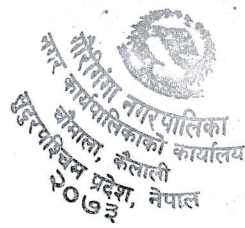 गौरीगंगा नगरपालिका
नगर कार्यपालिकाको कार्यालय
चौमाला, कैलाली
सुदूरपश्चिम प्रदेश, नेपाल
२०७३